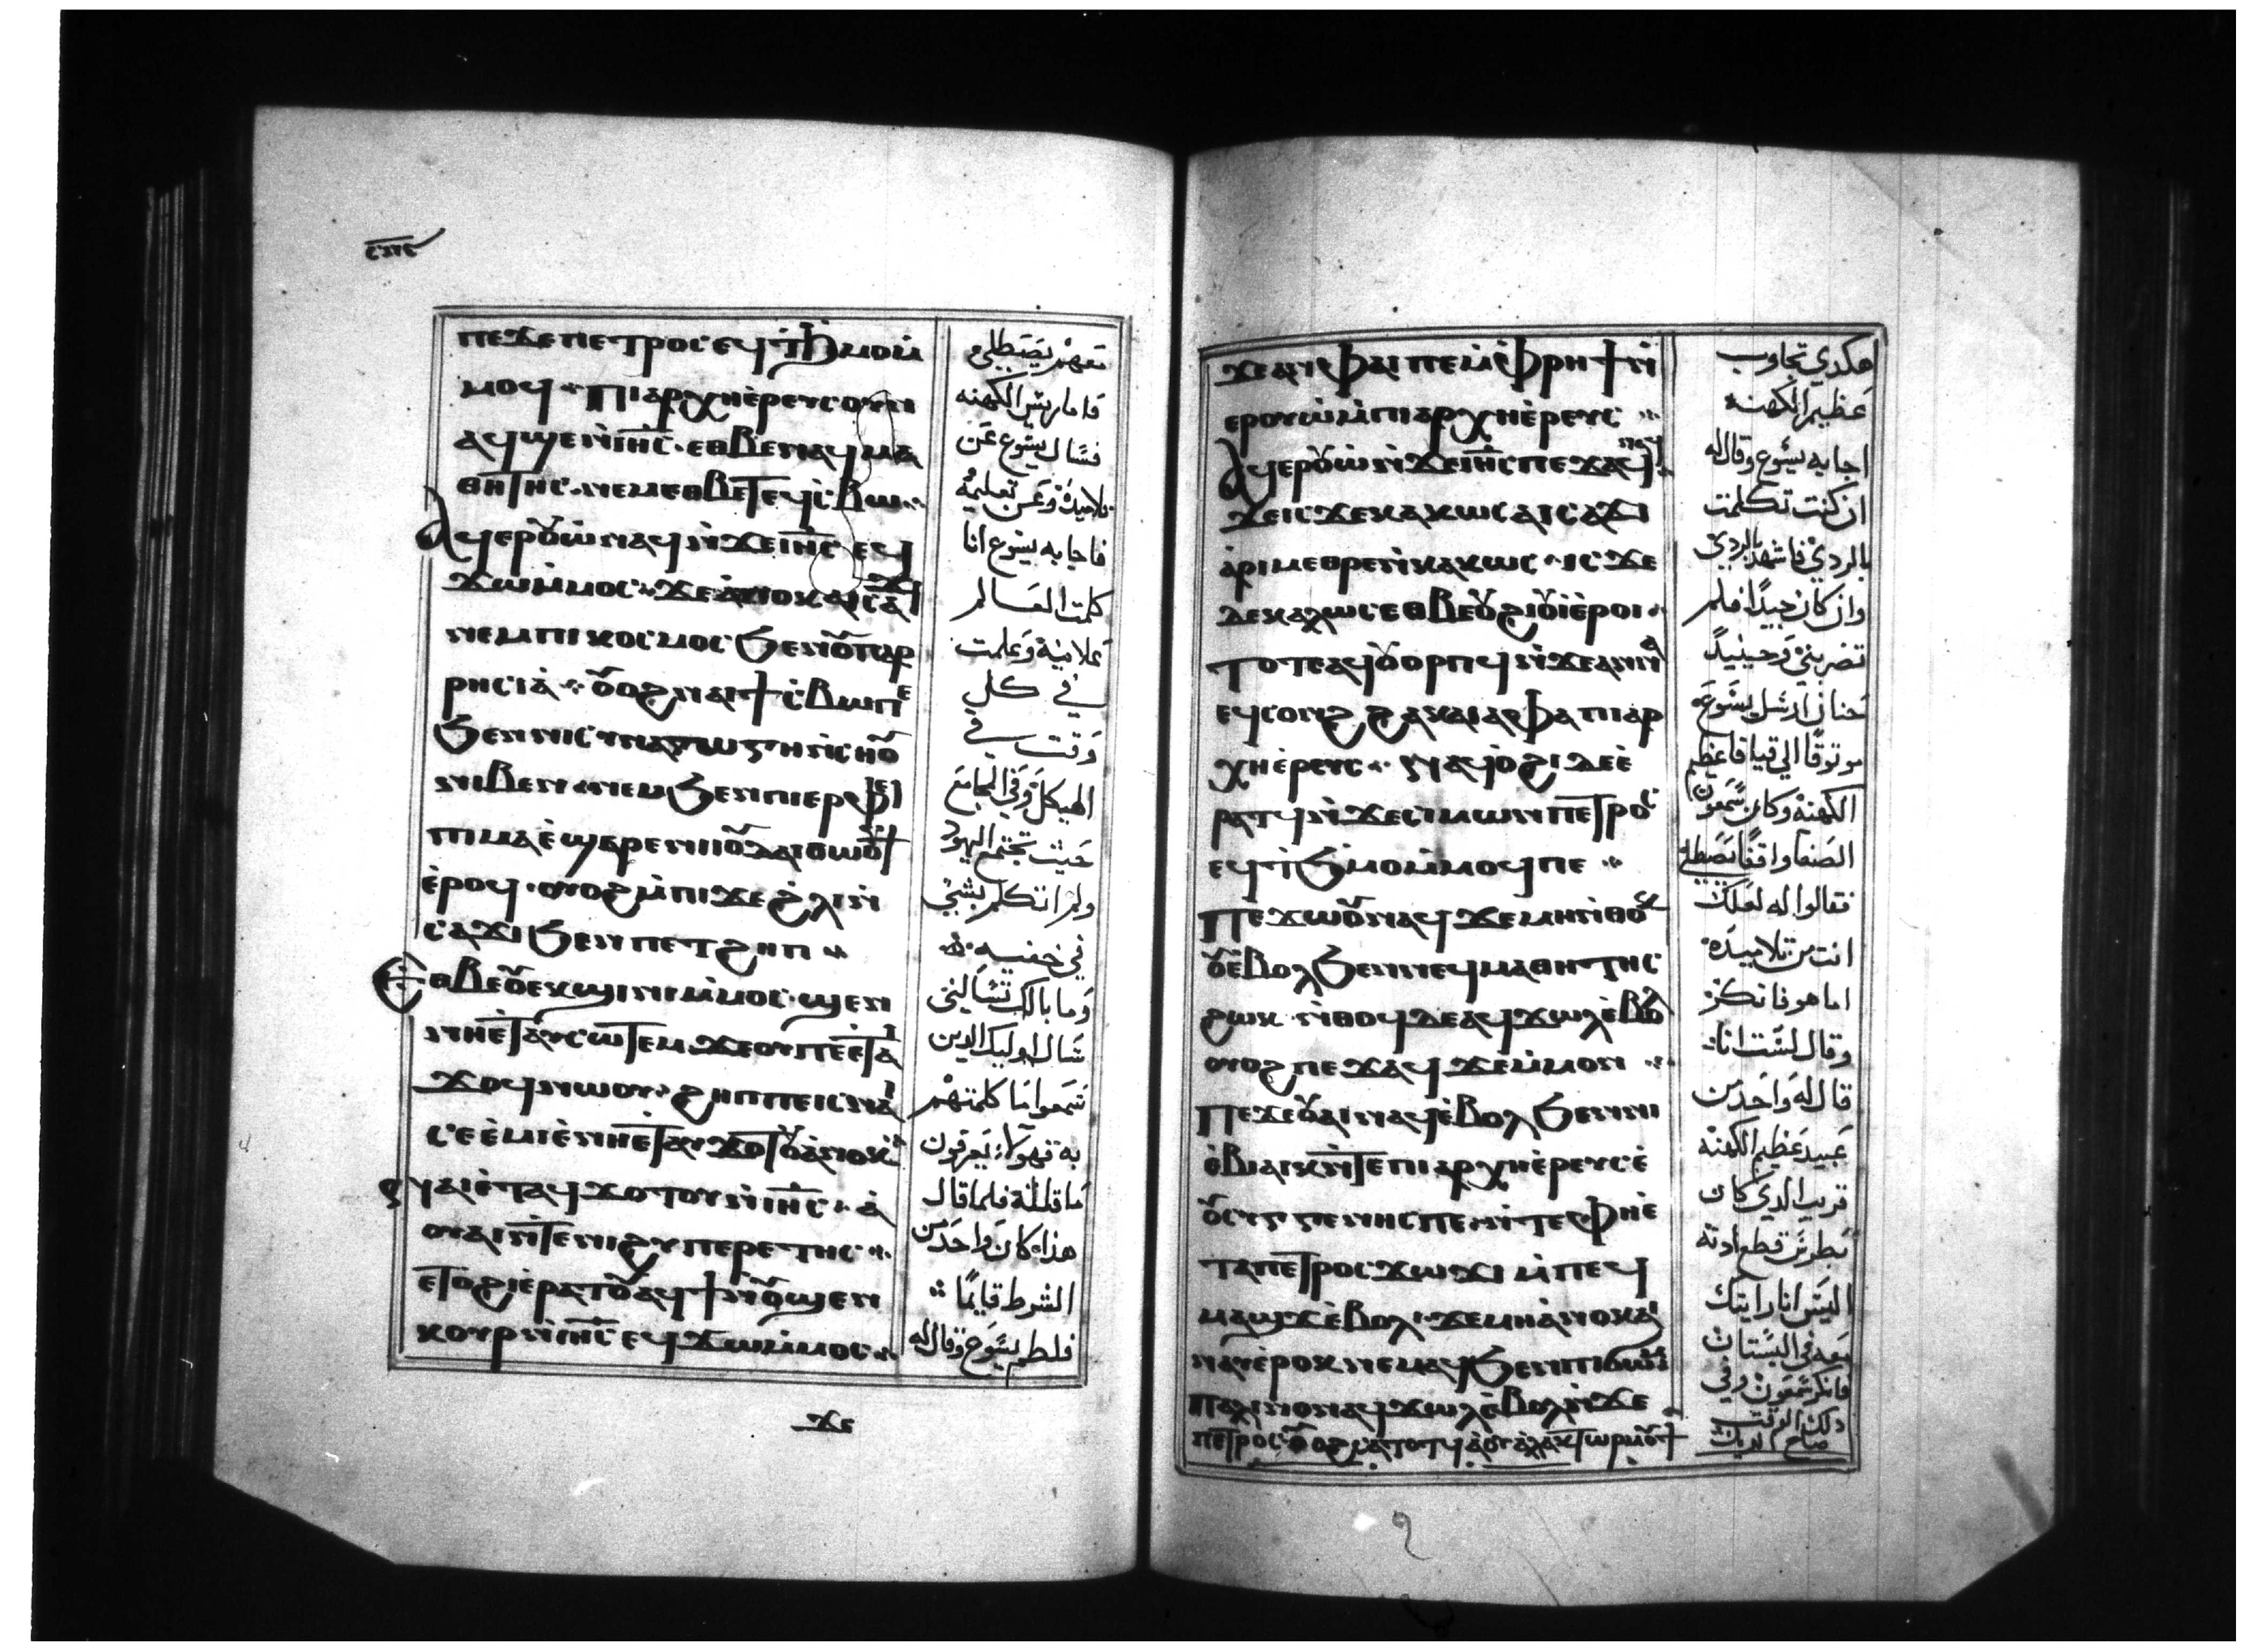 ⲡⲉϫⲉ ⲡⲉⲧⲣⲟⲥ ⲉϥϯϧⲙⲟⲙ
ⲙⲟϥ ⲡⲓⲁⲣⲭⲏⲉ̀ⲣⲉⲩⲥ ⲟⲩⲛ
ⲁϥϣⲉⲛ ⲓⲏ̅ⲥ̅ ⲉⲑⲃⲉ ⲛⲁϥⲙⲁ
ⲑⲏⲧⲏⲥ ⲛⲉⲙ ⲉⲑⲃⲉ ⲧⲉϥⲥ̀ⲃⲱ
ⲁϥⲉⲣⲟⲩⲱ̀ ⲛⲁϥ ⲛ̀ϫⲉ ⲓⲏ̅ⲥ̅ ⲉϥ
ϫⲱⲙ̀ⲙⲟⲥ ϫⲉ ⲁ̀ⲛⲟⲕ ⲁⲓⲥⲁϫⲓ
ⲛⲉⲙ ⲡⲓⲕⲟⲥⲙⲟⲥ ϧⲉⲛ ⲟⲩⲡⲁⲣ
ⲣⲏⲥⲓⲁ̀ ⲟⲩⲟϩ ⲛⲁⲓϯⲥ̀ⲃⲱ ⲡⲉ
ϧⲉⲛ ⲛⲓⲥⲩⲛⲁⲅⲱⲅⲏ ⲛ̀ⲥⲏⲟⲩ
ⲛⲓⲃⲉⲛ ⲛⲉⲙ ϧⲉⲛ ⲡⲓⲉⲣⲫⲉⲓ
ⲡⲓⲙⲁ ⲉ̀ϣⲁⲣⲉ ⲛⲓⲓⲟⲩⲇⲁⲓ ⲑⲱⲟⲩϯ
ⲉ̀ⲣⲟϥ ⲟⲩⲟϩ ⲙ̀ⲡⲓϫⲉ ϩ̀ⲗⲓ ⲛ̀
ⲥⲁϫⲓ ϧⲉⲛ ⲡⲉⲧϩⲏⲡ
ⲉⲑⲃⲉⲟⲩ ⲉⲕϣⲓⲛⲓ ⲙ̀ⲙⲟⲥ ϣⲉⲛ
ⲛⲏⲉ̀ⲧⲁⲩⲥⲱⲧⲉⲙ ϫⲉ ⲟⲩ ⲡⲉⲉ̀ⲧⲁⲓ
ϫⲟϥ ⲛⲱⲟⲩ ϩⲏⲡⲡⲉ ⲓⲥ ⲛⲁⲓ
ⲥⲉⲉ̀ⲙⲓ ⲉ̀ⲛⲏⲉ̀ⲧⲁⲓϫⲟⲧⲟⲩ ⲁ̀ⲛⲟⲕ
ⲛⲁⲓ ⲉ̀ⲧⲁϥϫⲟⲧⲟⲩ ⲛ̀ ⲓⲏ̅ⲥ̅ ⲁ̀
ⲟⲩⲁⲓ ⲛ̀ⲧⲉ ⲛⲓϩⲩⲡⲉⲣⲉⲧⲏⲥ
ⲉⲧⲟϩⲓ ⲉ̀ⲣⲁⲧⲟⲩ ⲁϥϯ ⲛ̀ⲟⲩϣⲉⲛ
ⲕⲟⲩⲣ ⲛ̀ ⲓⲏ̅ⲥ̅ ⲉϥϫⲱⲙ̀ⲙⲟⲥ
معهم يصطلي
فاما ريس الكهنه
فسال يسوع عن
تلاميذه وعن تعليمه
فاجابه يسوع انا
كلمت العالم
علانية وعلمت
في كل
وقت في
الهيكل وفي المجامع
حيث تجتمع اليهود
ولم اتكلم بشي
في خفيه
وما بالك تسالني
سال اوليك الدين
سمعوا ما كلمتهم
به فهولاء يعرفون
ما قلته فلما قال
هذا كان واحد من
الشرط قايما
فلطم يسوع وقال له
ϫⲉ
ϫⲉ ⲁⲛ ⲉ ⲫⲁⲓ ⲡⲉ ⲙ̀ⲫⲣⲏϯ ⲛ̀
ⲉⲣⲟⲩⲱ̀ ⲙ̀ⲡⲓⲁⲣⲭⲏⲉ̀ⲣⲉⲩⲥ
ⲁϥⲉⲣⲟⲩⲱ̀ ⲛ̀ϫⲉ ⲓⲏ̅ⲥ̅ ⲡⲉϫⲁϥ ⲛⲁϥ
ϫⲉ ⲓⲥϫⲉ ⲕⲁⲕⲱⲥ ⲁⲓⲥⲁϫⲓ
ⲁ̀ⲣⲓⲙⲉⲑⲣⲉ ⲛ̀ⲕⲁⲕⲱⲥ ⲓⲥϫⲉ
ⲇⲉ ⲕⲁⲗⲱⲥ ⲉⲑⲃⲉⲟⲩ ϩⲓⲟⲩⲓ̀ ⲉ̀ⲣⲟⲓ
ⲧⲟⲧⲉ ⲁϥⲟⲩⲟⲣⲡϥ ⲛ̀ϫⲉ ⲁⲛⲛⲁ
ⲉϥⲥⲟⲛϩ ϩⲁ ⲕⲁⲓⲁⲫⲁ ⲡⲓⲁⲣ
ⲭⲏⲉ̀ⲣⲉⲩⲥ ⲛⲁϥⲟ̀ϩⲓ ⲇⲉ ⲉ̀
ⲣⲁⲧϥ ⲛ̀ϫⲉ ⲥⲓⲙⲱⲛ ⲡⲉⲧⲣⲟⲥ
ⲉϥϯϧⲙⲟⲙ ⲙ̀ⲙⲟϥ ⲡⲉ
ⲡⲉϫⲱⲟⲩ ⲛⲁϥ ϫⲉ ⲙⲏ ⲛ̀ⲑⲟⲕ
ⲟⲩⲉ̀ⲃⲟⲗ ϧⲉⲛ ⲛⲉϥⲙⲁⲑⲏⲧⲏⲥ
ϩⲱⲕ ⲛ̀ⲑⲟϥ ⲇⲉ ⲁϥϫⲱⲗ ⲉ̀ⲃⲟⲗ
ⲟⲩⲟϩ ⲡⲉϫⲁϥ ϫⲉ ⲙ̀ⲙⲟⲛ
ⲡⲉϫⲉ ⲟⲩⲁⲓ ⲛⲁϥ ⲉ̀ⲃⲟⲗ ϧⲉⲛ ⲛⲓ
ⲉ̀ⲃⲓⲁⲓⲕ ⲛ̀ⲧⲉ ⲡⲓⲁⲣⲭⲏⲉ̀ⲣⲉⲩⲥ ⲉ̀
ⲟⲩⲥⲩⲅⲅⲉⲛⲏⲥ ⲡⲉ ⲛ̀ⲧⲉ ⲫⲏⲉ̀
ⲧⲁ ⲡⲉⲧⲣⲟⲥ ϫⲱϫⲓ ⲙ̀ⲡⲉϥ
ⲙⲁϣϫ ⲉ̀ⲃⲟⲗ ϫⲉ ⲙⲏ ⲁ̀ⲛⲟⲕ ⲁⲓ
ⲛⲁⲩ ⲉ̀ⲣⲟⲕ ⲛⲉⲙⲁϥ ϧⲉⲛ ⲡⲓϭⲱⲙ
ⲡⲁⲗⲓⲛ ⲟⲛ ⲁϥϫⲱⲗ ⲉ̀ⲃⲟⲗ ⲛ̀ϫⲉ
ⲡⲉⲧⲣⲟⲥ ⲟⲩⲟϩ ⲥⲁⲧⲟⲧϥ ⲁ̀ ⲟⲩⲁ̀ⲗⲉⲕⲧⲱⲣ ⲙⲟⲩϯ
هكدي تجاوب
عظيم الكهنه
اجابه يسوع وقال له
ان كنت تكلمت
بالردي فاشهد بالردي
وان كان جيدا فلم
تضربني وحينيد
حنان ارسل يسوع
موتوقا الي قيافا عظيم
الكهنه وكان سمعون
الصفا واقفا يصطلي
فقالوا له لعلك
انت من تلاميده
اما هو فانكر
وقال لست انا
قال له واحد من
عبيد عظيم الكهنه
قريب الدي كان
بطرس قطع ادنه
اليس انا رايتك
معه في البستان
فانكر سمعون وفي
دلك الوقت
صاح الديك